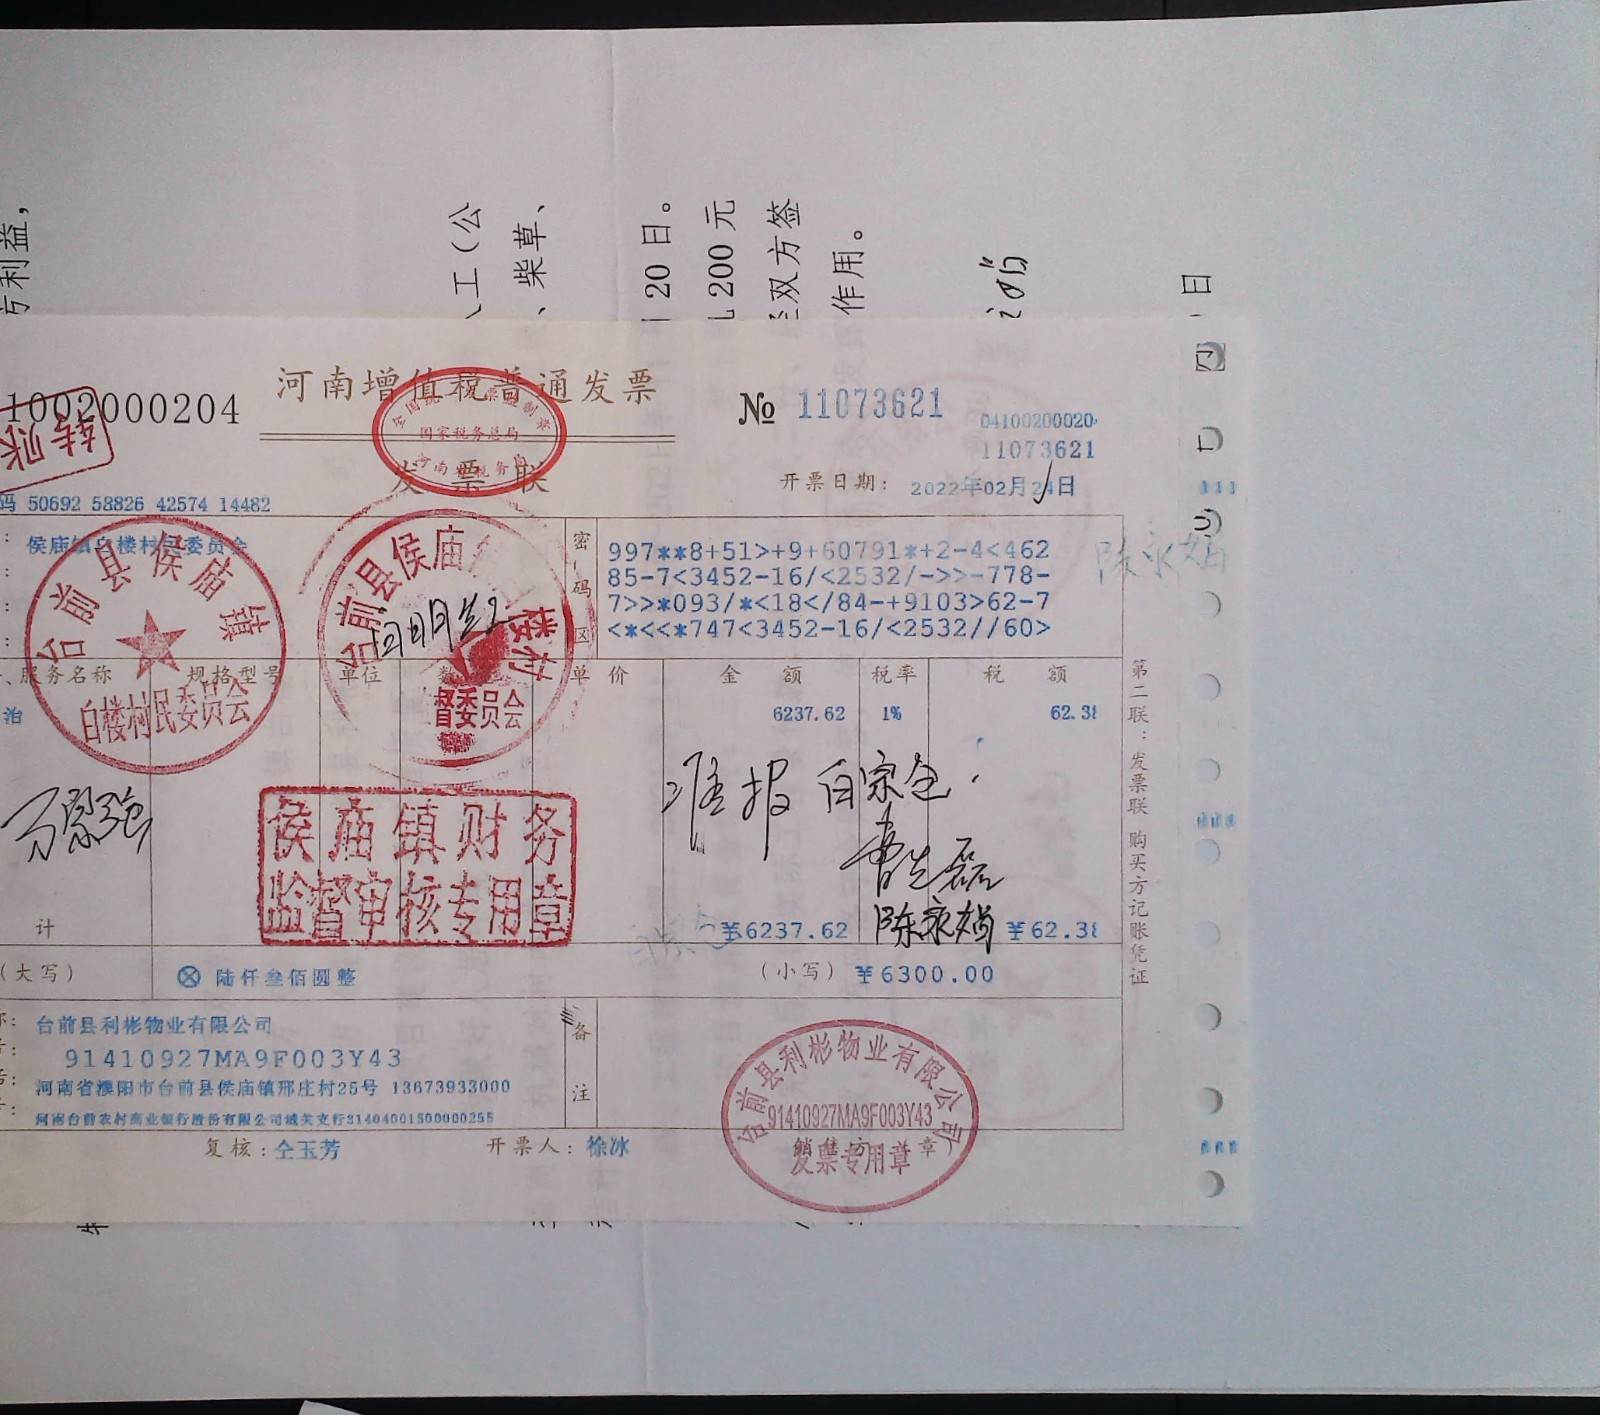 益，
工（公
、柴草、
20日。
200元
双方签
作用。
日
1002000204
河南增值税普通发票
发票联
全国统一发票监制章
国家税务总局
河南省税务局
№ 11073621
04100200020
11073621
开票日期： 2022年02月24日
转账
码 50692 58826 42574 14482
侯庙镇白楼村民委员会
台前县侯庙镇
白楼村民委员会
台前县侯庙镇白楼村
督委员会
密码区
997**8+51>+9+60791*+2-4<462
85-7<3452-16/<2532/->>-778-
7>>*093/*<18</84-+9103>62-7
<*<<*747<3452-16/<2532//60>
陈永娟
、服务名称 规格型号 单位 数 单价 金额 税率 税额
治 6237.62 1% 62.38
准报 白宗仓
曹志磊
陈永娟
侯庙镇财务
监督审核专用章
计 ¥6237.62 ¥62.38
（大写） ⊗ 陆仟叁佰圆整 （小写） ¥6300.00
台前县利彬物业有限公司
91410927MA9F003Y43
河南省濮阳市台前县侯庙镇邢庄村25号 13673933000
河南台前农村商业银行股份有限公司城关支行31404001500000255
备注
台前县利彬物业有限公司
91410927MA9F003Y43
发票专用章
复核：仝玉芳 开票人：徐冰
第二联：发票联 购买方记账凭证